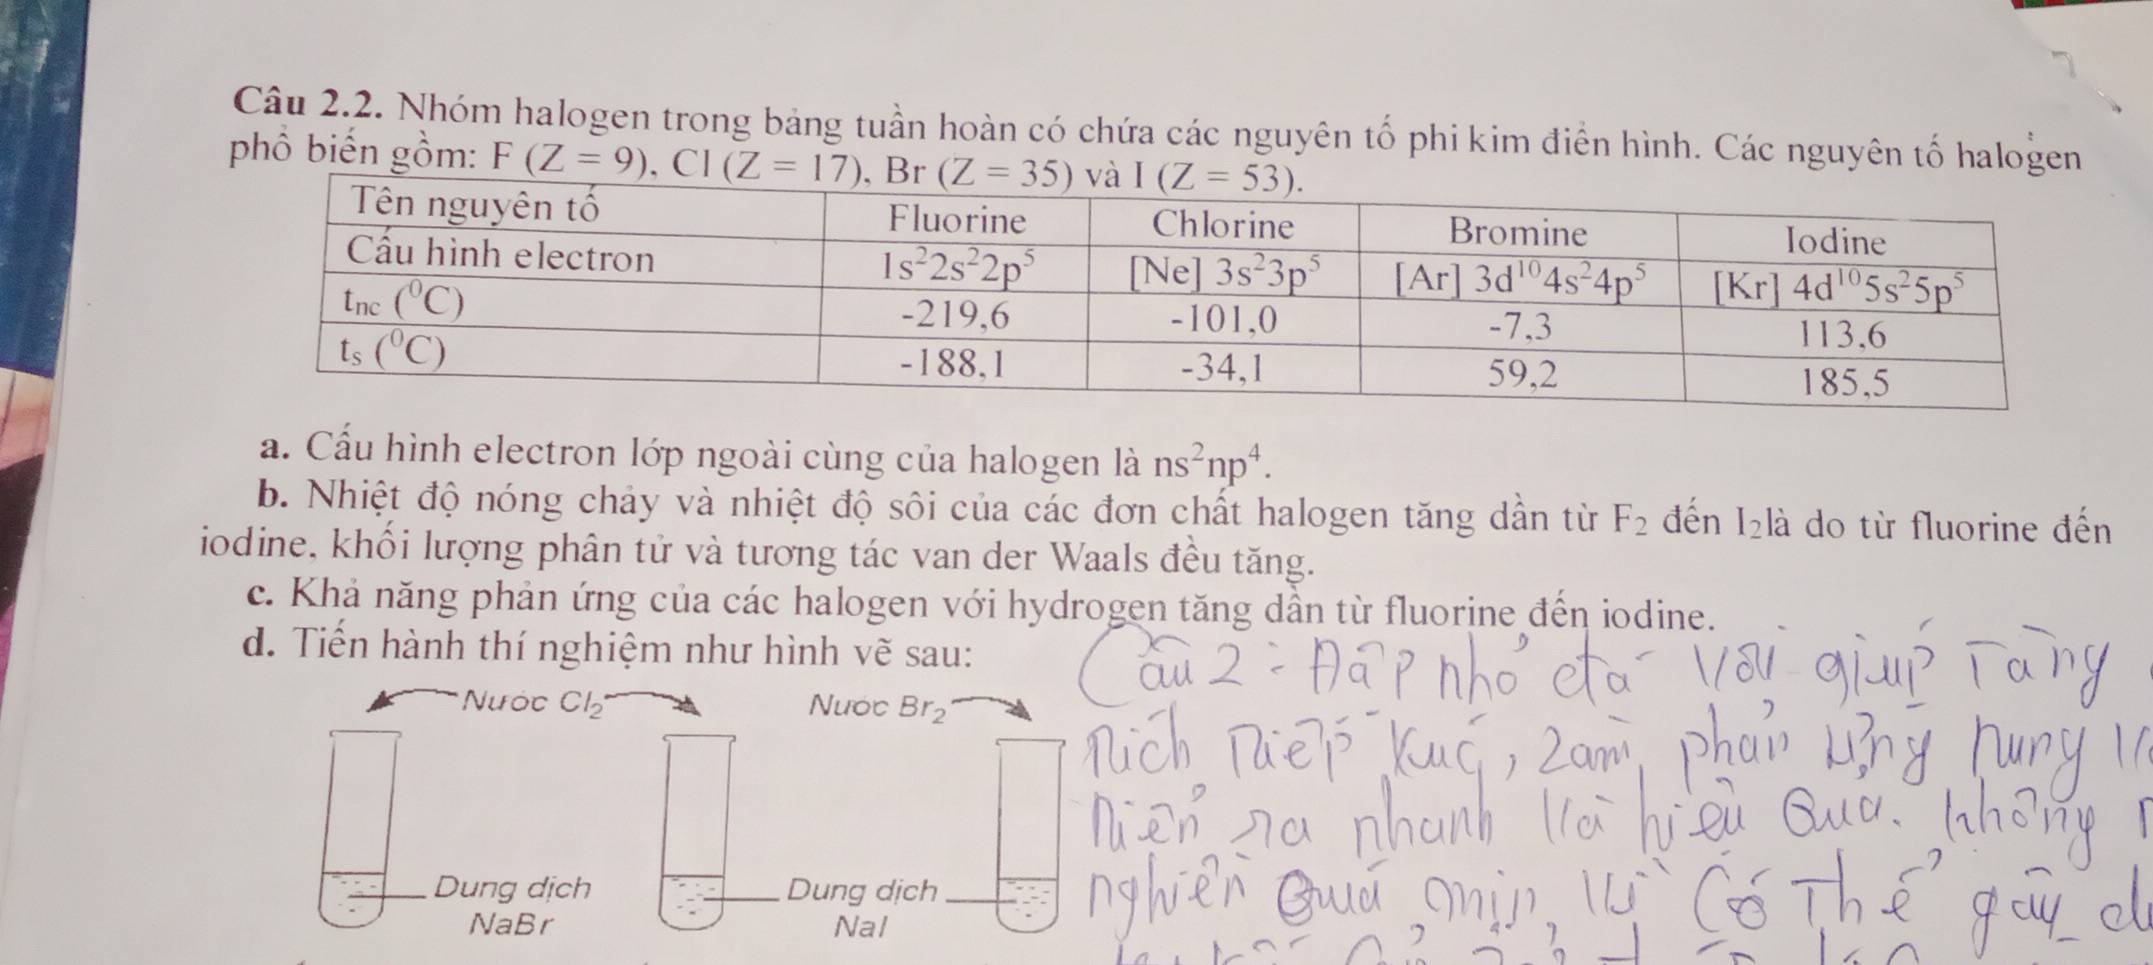 Câu 2.2. Nhóm halogen trong bảng tuần hoàn có chứa các nguyên tố phi kim điển hình. Các nguyên tố halogen
phổ biến gồm: F (Z = 9), Cl (Z = 17), Br (Z = 35) và I (Z = 53).
Tên nguyên tố Fluorine Chlorine Bromine Iodine
Cấu hình electron 1s²2s²2p⁵ [Ne] 3s²3p⁵ [Ar] 3d¹⁰4s²4p⁵ [Kr] 4d¹⁰5s²5p⁵
tnc (⁰C) -219,6 -101,0 -7,3 113,6
ts (⁰C) -188,1 -34,1 59,2 185,5
a. Cấu hình electron lớp ngoài cùng của halogen là ns²np⁴.
b. Nhiệt độ nóng chảy và nhiệt độ sôi của các đơn chất halogen tăng dần từ F₂ đến I₂là do từ fluorine đến
iodine, khối lượng phân tử và tương tác van der Waals đều tăng.
c. Khả năng phản ứng của các halogen với hydrogen tăng dần từ fluorine đến iodine.
d. Tiến hành thí nghiệm như hình vẽ sau:
Nước Cl₂ Nước Br₂
Dung dịch
NaBr
Dung dịch
NaI
Câu 2: Đập nhỏ đá vôi giúp tăng
tích tiếp xúc, làm phản ứng nung
ra nhanh và hiệu quả. không
nghiền quá mịn, vì có thể gây